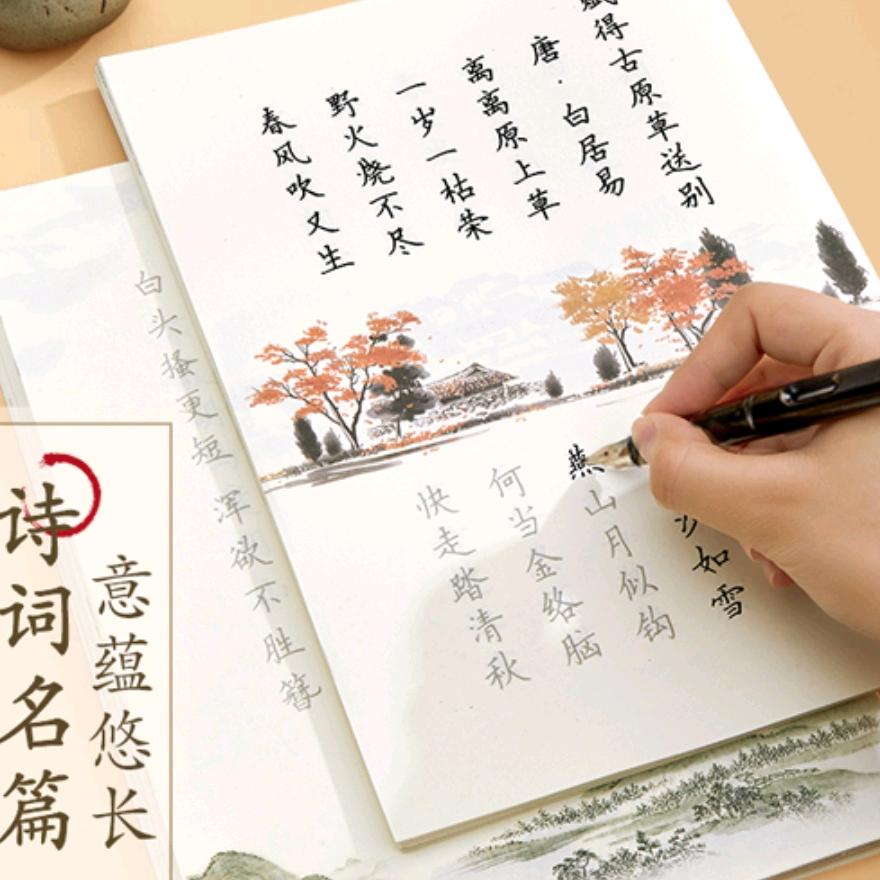 赋得古原草送别
唐·白居易
离离原上草
一岁一枯荣
野火烧不尽
春风吹又生
沙如雪
燕山月似钩
何当金络脑
快走踏清秋
白头搔更短
浑欲不胜簪
意蕴悠长
诗词名篇